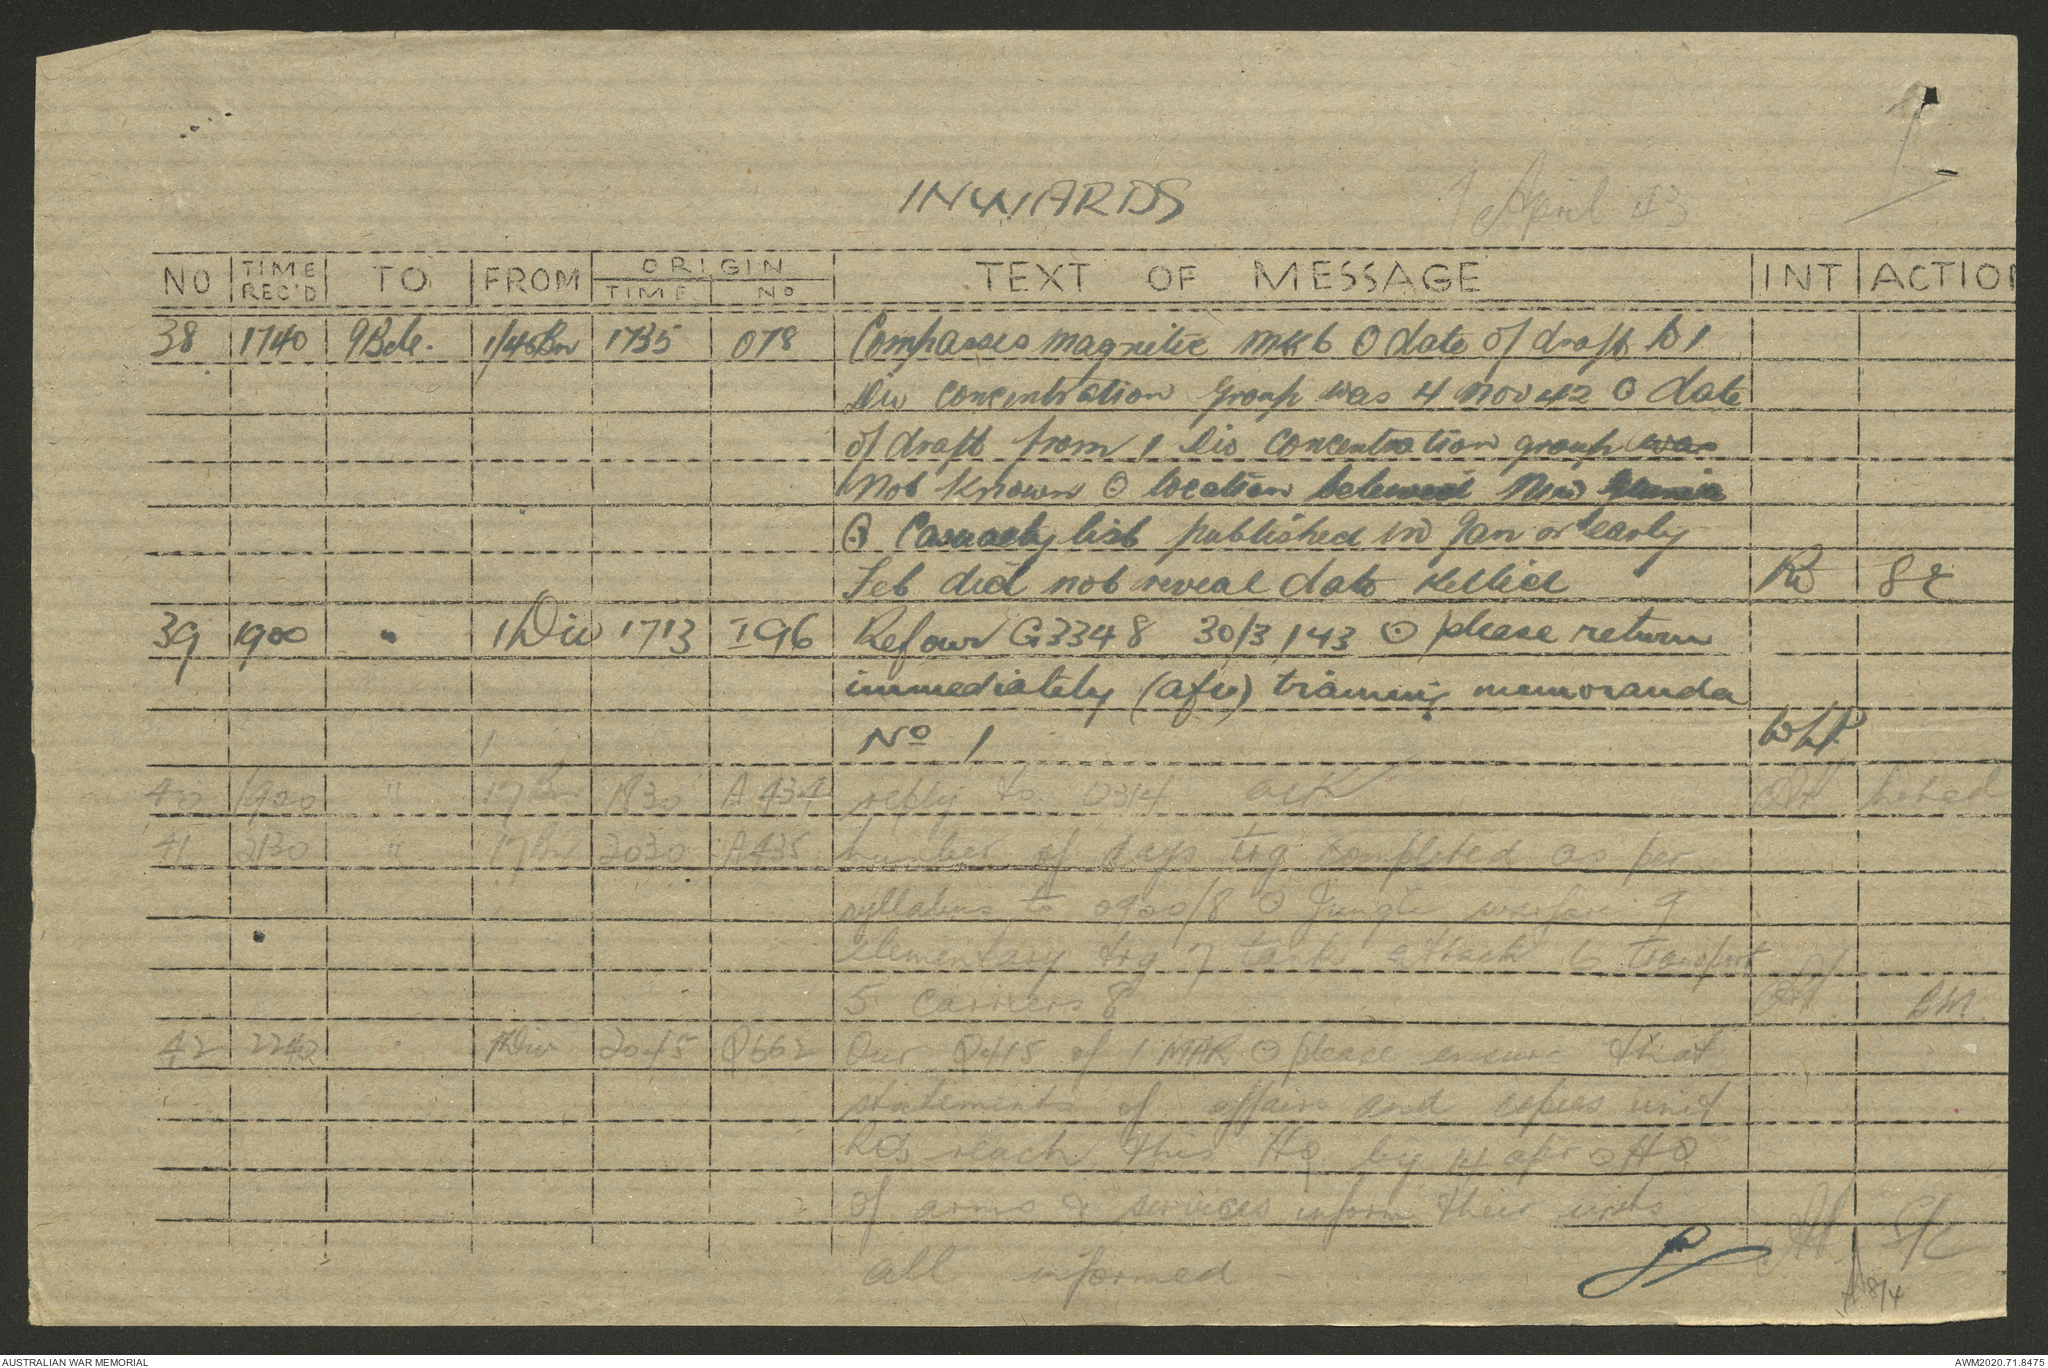 INWARDS
April 43
NO TIME REC'D TO FROM ORIGIN TIME NO TEXT OF MESSAGE INT ACTION
38 1740 9Bde. 1/45Bn 1735 078 Compasses magnetic mk 6 ⊙ date of draft to 1
Div concentration group was 4 Nov 42 ⊙ date
of draft from 1 Div concentration group was
not known ⊙ location believed New Guinea
⊙ Casualty list published in Jan or early
Feb did not reveal date killed
39 1900 " 1 Div 1713 I 96 Ref our G3348 30/3/43 ⊙ please return
immediately (afv) training memoranda
No 1 WHP
40 1920 " 17 Bn 1830 A 434 reply to D314 ack
41 2130 " 17 Bn 2030 A435 number of days trg completed as per
syllabus to 0900/8 ⊙ Jungle warfare 9
elementary trg 7 tank attack 6 transport
5 carriers 8 BM
42 2240 " 1 Div 2045 Q662 Our Q415 of 1 MAR ⊙ please ensure that
statements of affairs and copies unit
ROs reach this HQ by 14 apr ⊙ HQ
of arms & services inform their units
all informed S/C
8/4
AUSTRALIAN WAR MEMORIAL
AWM2020.71.8475